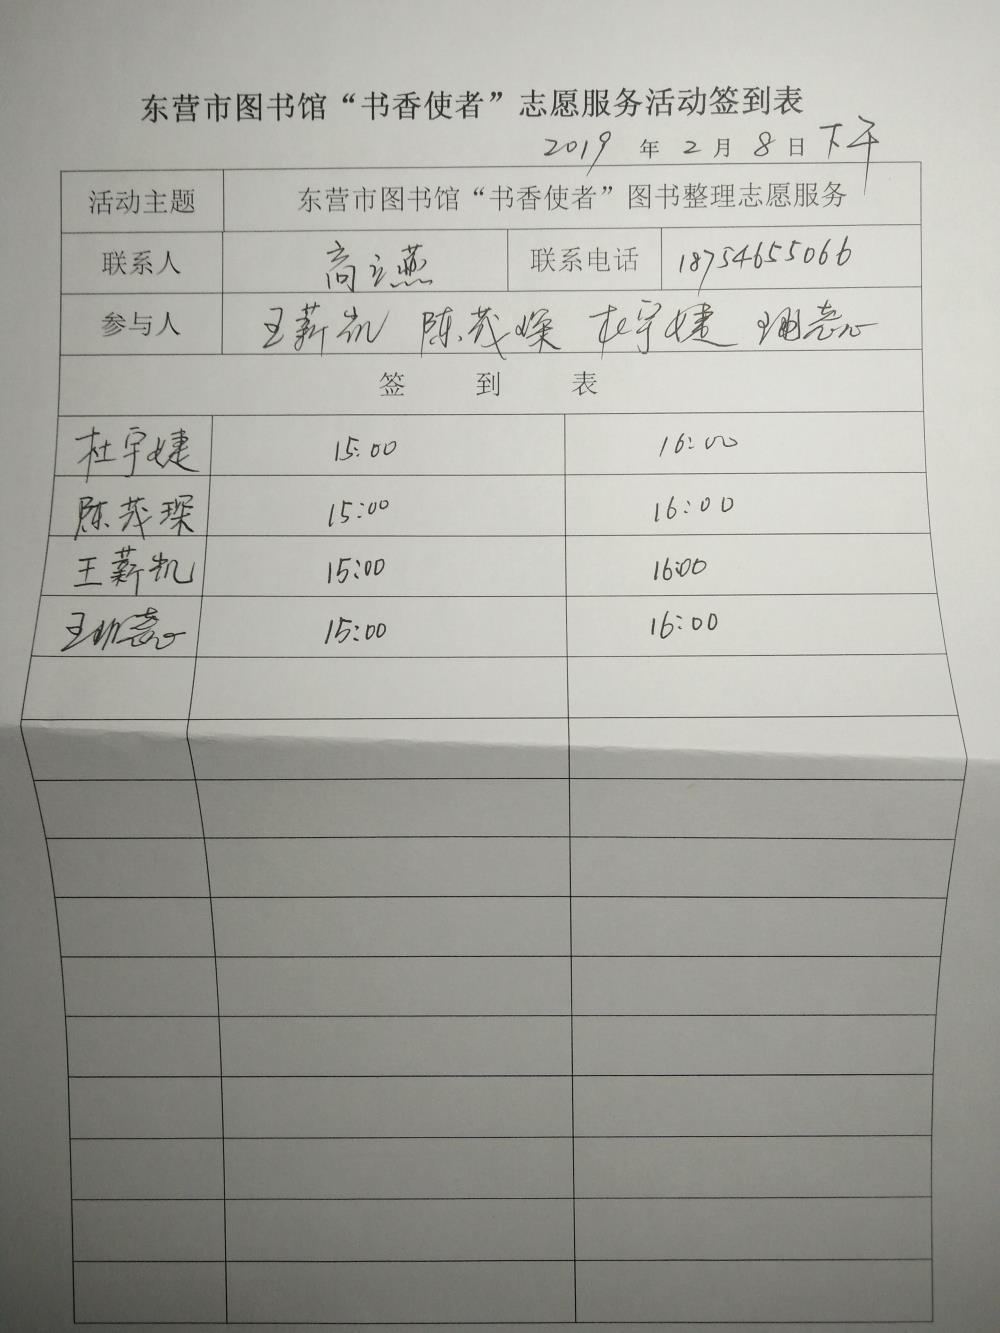 东营市图书馆“书香使者”志愿服务活动签到表
2019 年 2 月 8 日 下午
活动主题 东营市图书馆“书香使者”图书整理志愿服务
联系人 商立燕 联系电话 18754655066
参与人 王薪凯 陈茂琛 杜宇婕 王
签 到 表
杜宇婕 15:00 16:00
陈茂琛 15:00 16:00
王薪凯 15:00 16:00
王 15:00 16:00